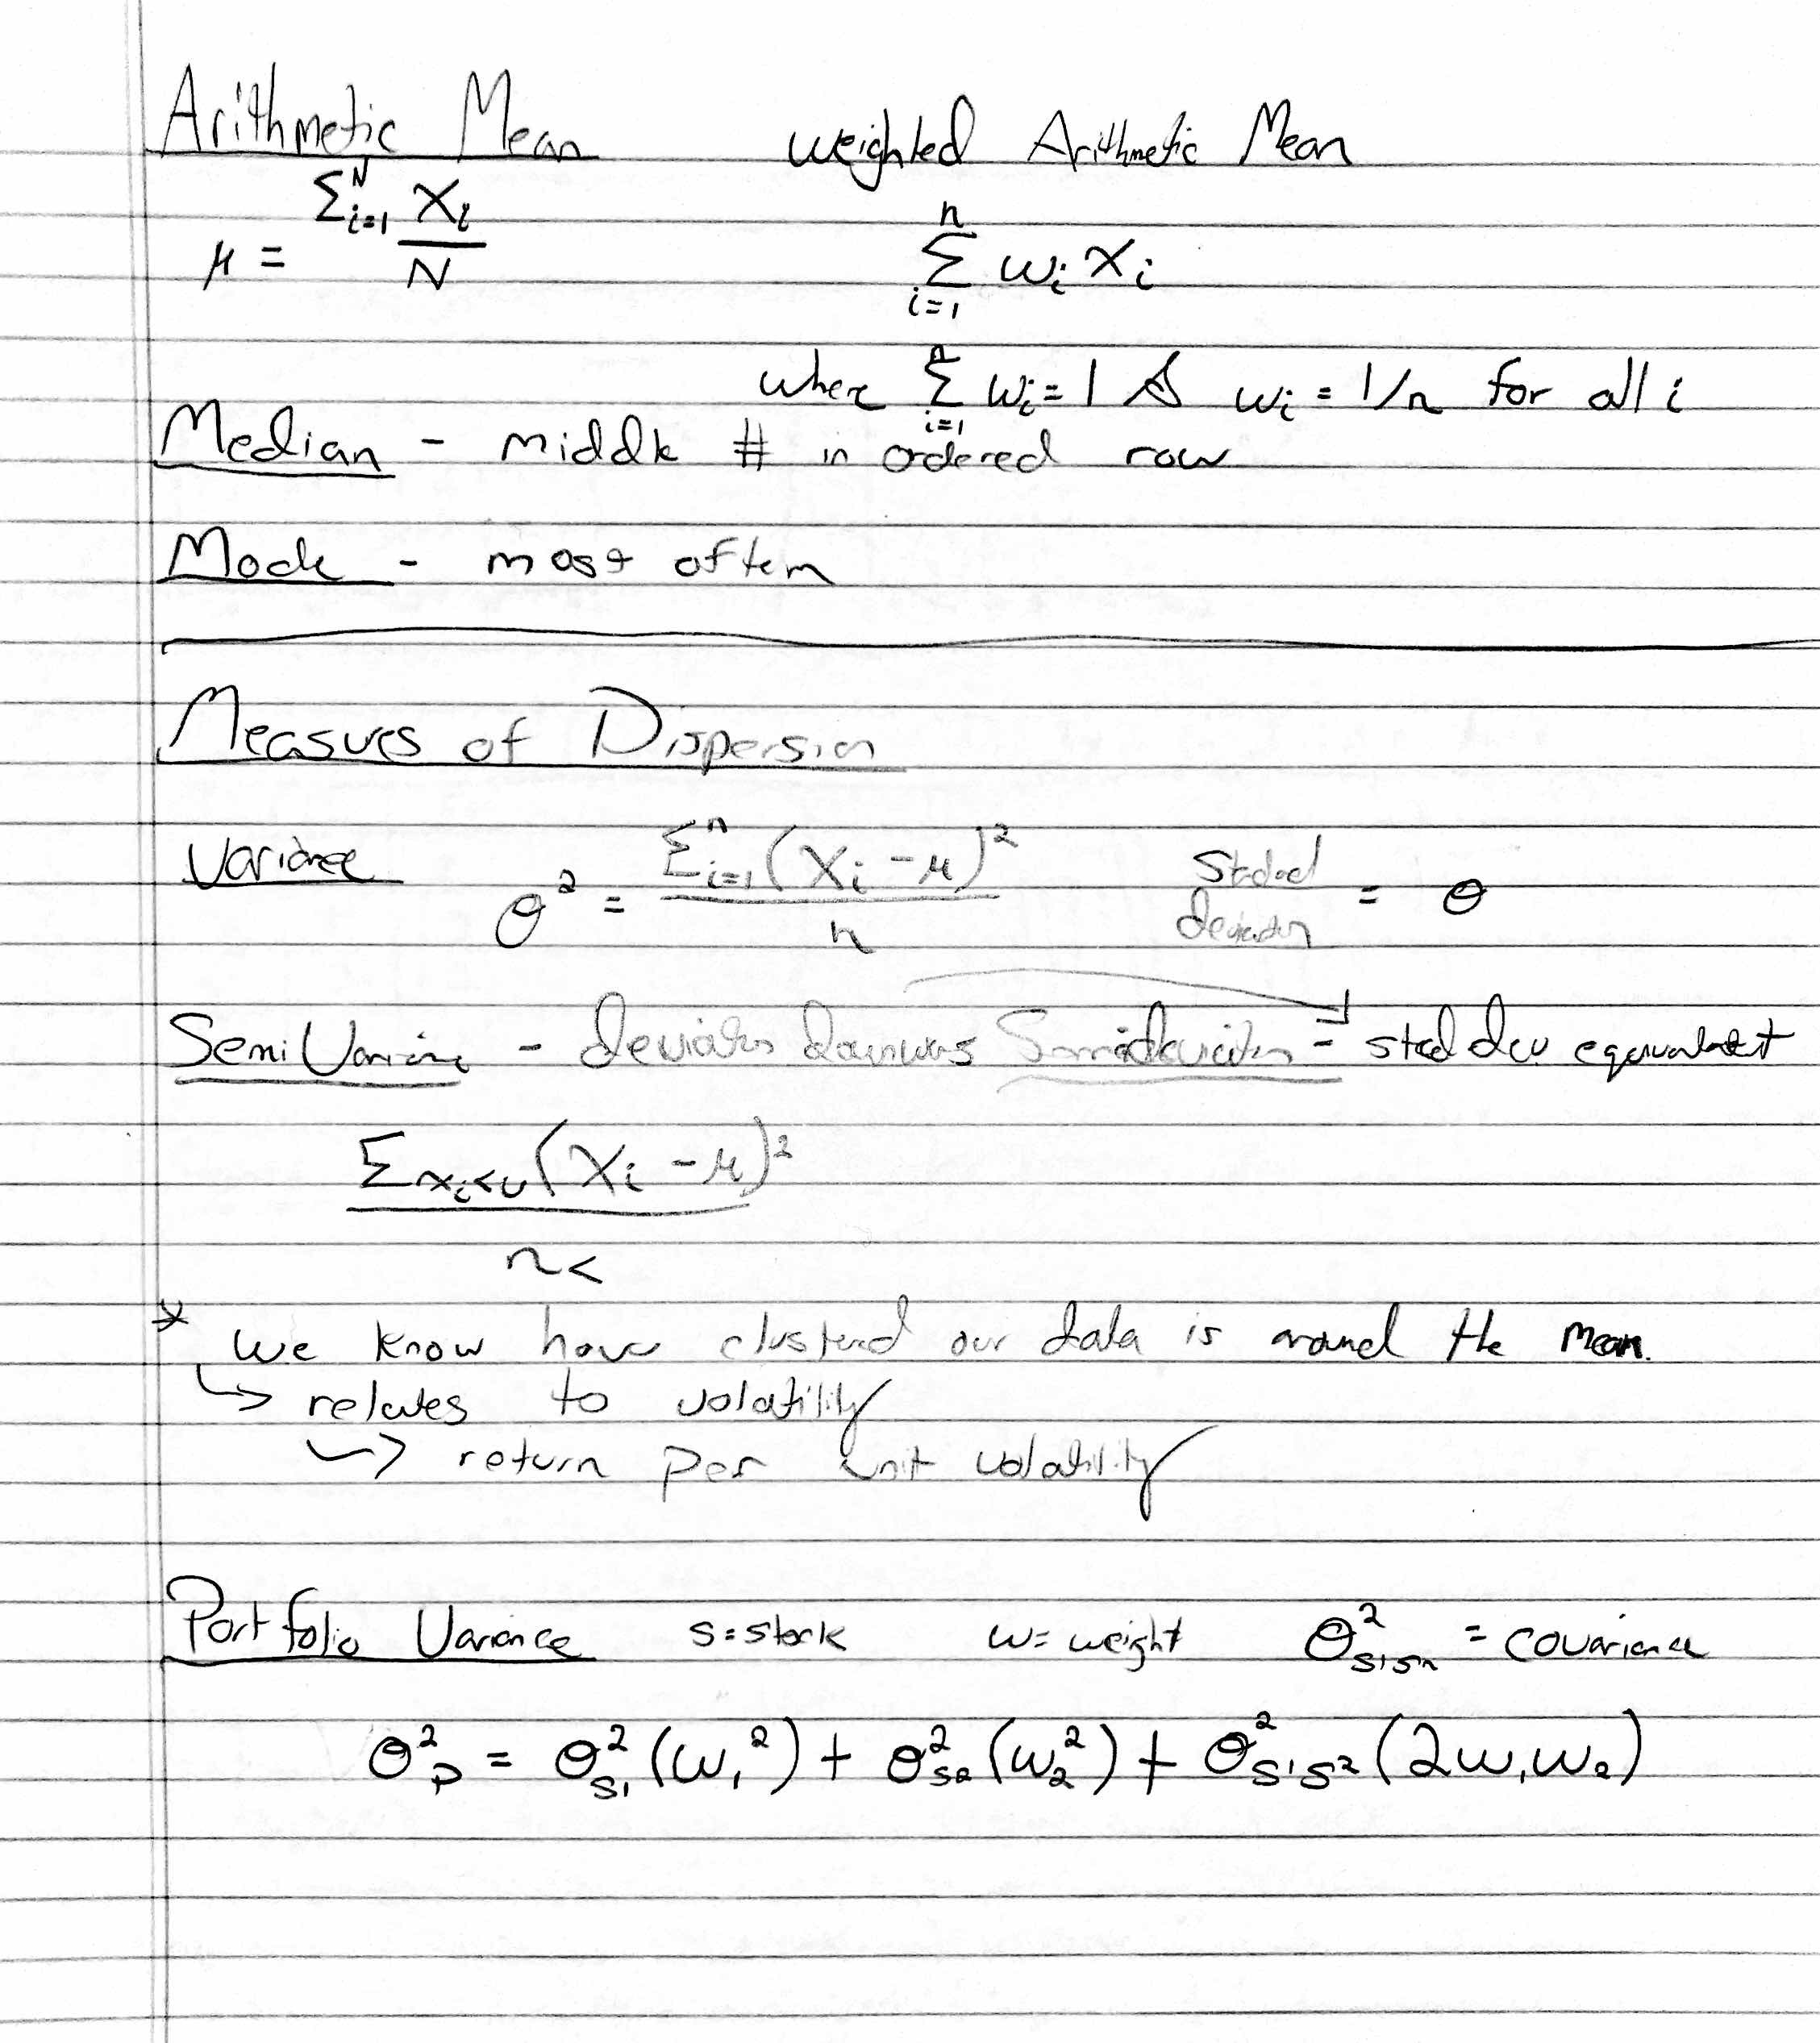 Arithmetic Mean    weighted Arithmetic Mean
μ = Σᴺᵢ₌₁ Xᵢ / N    ⁿΣᵢ₌₁ wᵢ xᵢ
where ⁿΣᵢ₌₁ wᵢ = 1 & wᵢ = 1/n for all i
Median - middle # in ordered row
Mode - most often
Measures of Dispersion
Variance    θ² = Σⁿᵢ₌₁ (Xᵢ - μ)² / n    Stdad deviation = θ
SemiVariance - deviates downwards Semideviation = std dev equivalent
Σxᵢ<u (Xᵢ - μ)² / n<
* we know how clustered our data is around the mean.
↳ relates to volatility
↳ return per unit volatility
Portfolio Variance    s = stock    w = weight    θ²s₁sₙ = covariance
θ²p = θ²s₁ (w₁²) + θ²s₂ (w₂²) + θ²s₁s₂ (2w₁w₂)